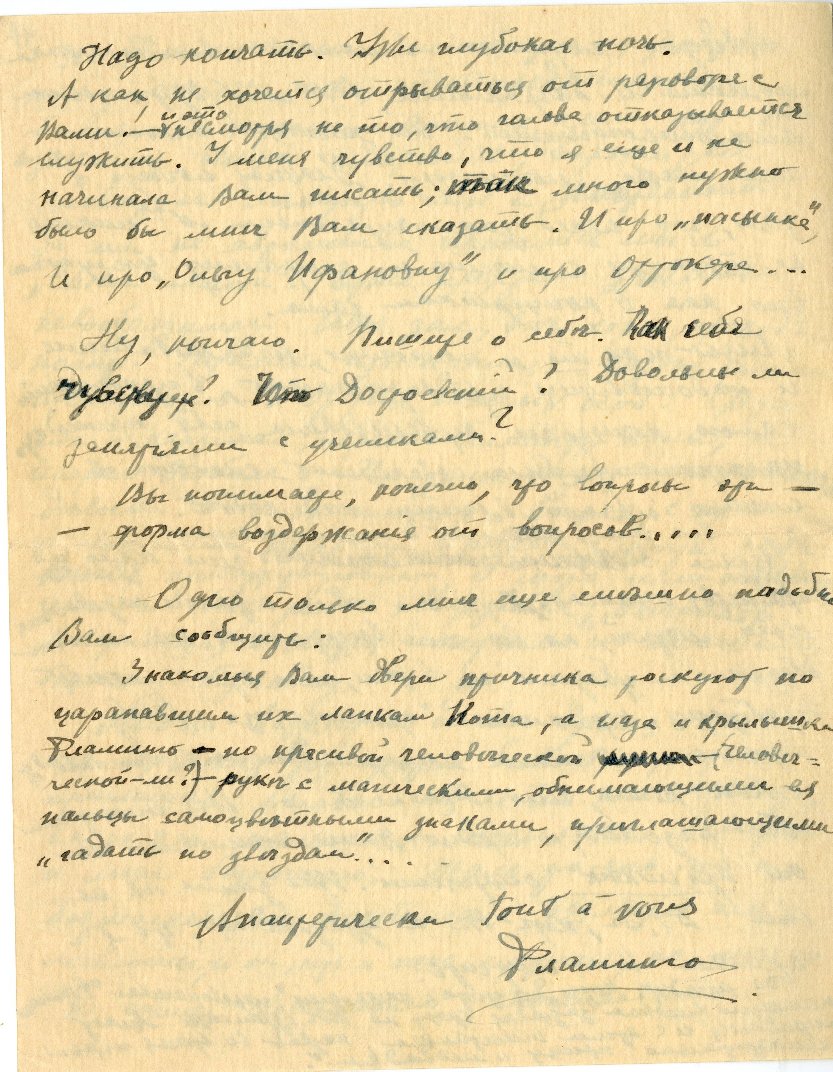 Надо кончать. Уже глубокая ночь.
А как не хочется отрываться от разговора с
Вами! — И это несмотря на то, что голова отказывается
служить. У меня чувство, что я еще и не
начинала Вам писать; так много нужно
было бы мнѣ Вам сказать. И про „пасынка",
И про „Ольгу Ифановну" и про
Ну, кончаю. Пишите о себѣ. Как себя
чувствуете? Что Достоевскій? Довольны ли
занятіями с учениками?
Вы понимаете, конечно, что вопросы эти —
— форма воздержанія от вопросов.....
Одно только мнѣ еще спѣшно надобно
Вам сообщить:
Знакомыя Вам двери пу
царапавшим их лапкам Кота, а глаза и крылышки
Фламинго — по красивой человѣческой — (человѣ-
ческой-ли?) — рукѣ с магическими, обнимающими ея
пальцы самоцвѣтными знаками, приглашающими
„гадать по звѣздам"....
Анапестически Tout à vous
Фламинго